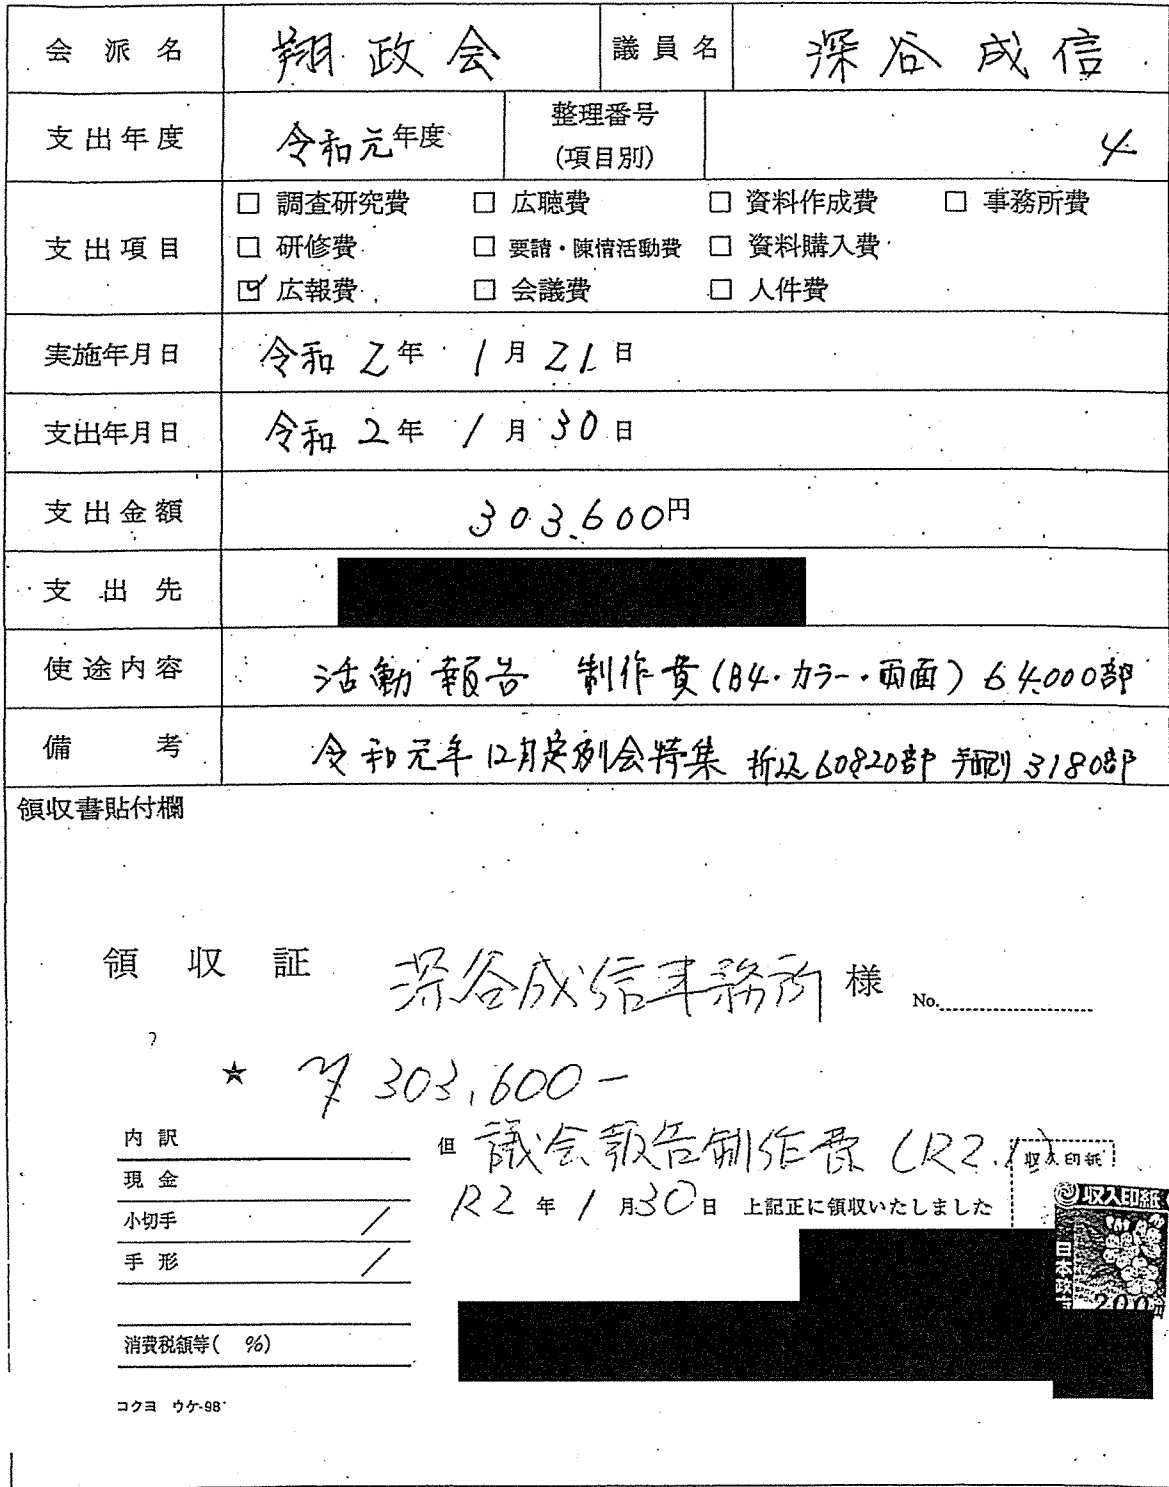 会派名 翔政会 議員名 深谷成信
支出年度 令和元年度 整理番号(項目別) 4
支出項目
□ 調査研究費 □ 広聴費 □ 資料作成費 □ 事務所費
□ 研修費 □ 要請・陳情活動費 □ 資料購入費
☑ 広報費 □ 会議費 □ 人件費
実施年月日 令和2年1月21日
支出年月日 令和2年1月30日
支出金額 303,600円
支出先
使途内容 活動報告 制作費(B4・カラー・両面) 64,000部
備考 令和元年12月定例会特集 折込60820部 手配り3180部
領収書貼付欄
領収証 深谷成信事務所様 No.
★ ¥303,600-
内訳
但 議会報告制作費(R2.1)
収入印紙
現金
R2年1月30日 上記正に領収いたしました
小切手 /
手形 /
収入印紙
日本政府
200円
消費税額等( %)
コクヨ ウケ-98